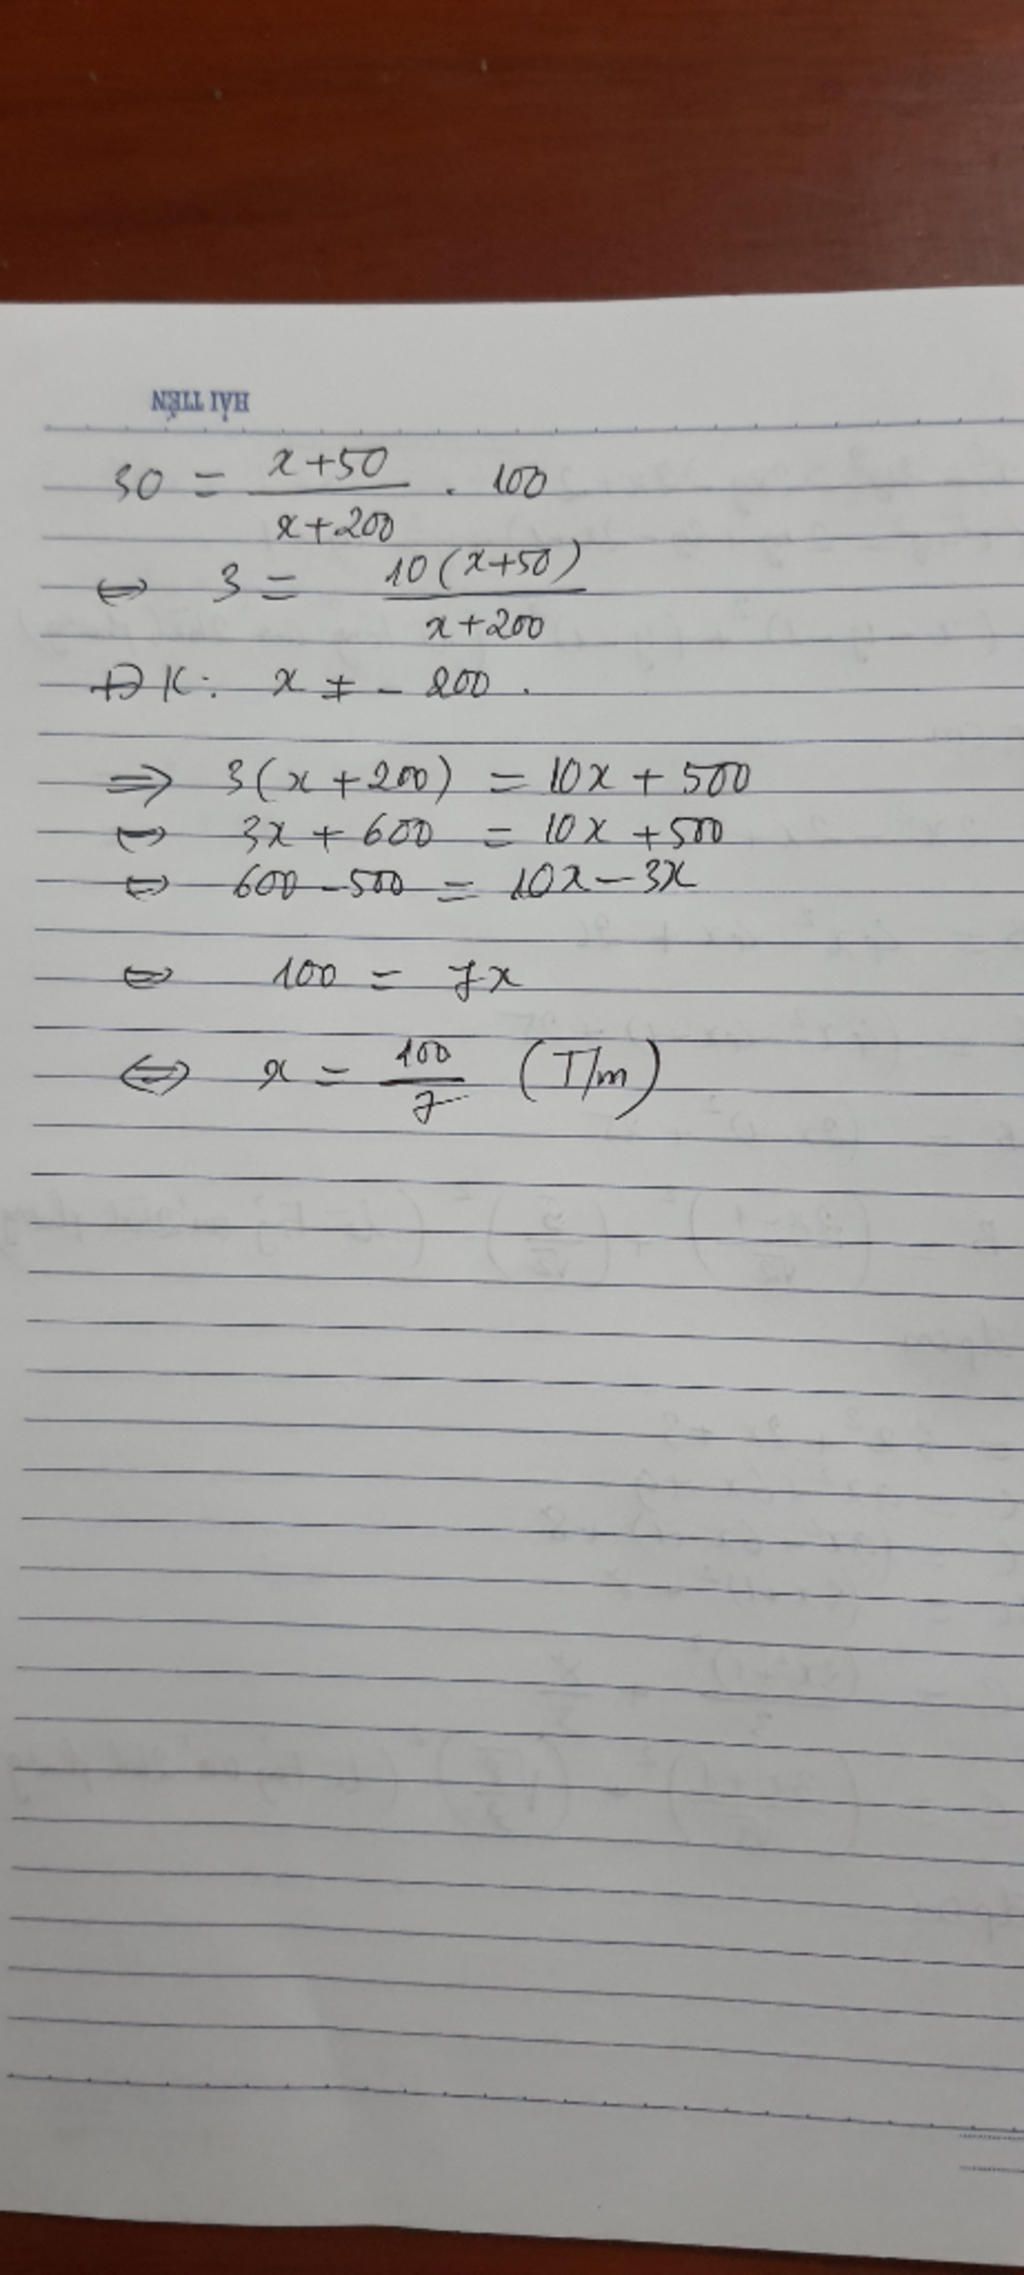 HẢI TIẾN
30 = \frac{x+50}{x+200} . 100
⇔ 3 = \frac{10(x+50)}{x+200}
ĐK: x ≠ - 200.
⇒ 3(x+200) = 10x + 500
⇔ 3x + 600 = 10x + 500
⇔ 600 - 500 = 10x - 3x
⇔ 100 = 7x
⇔ x = \frac{100}{7} (T/m)